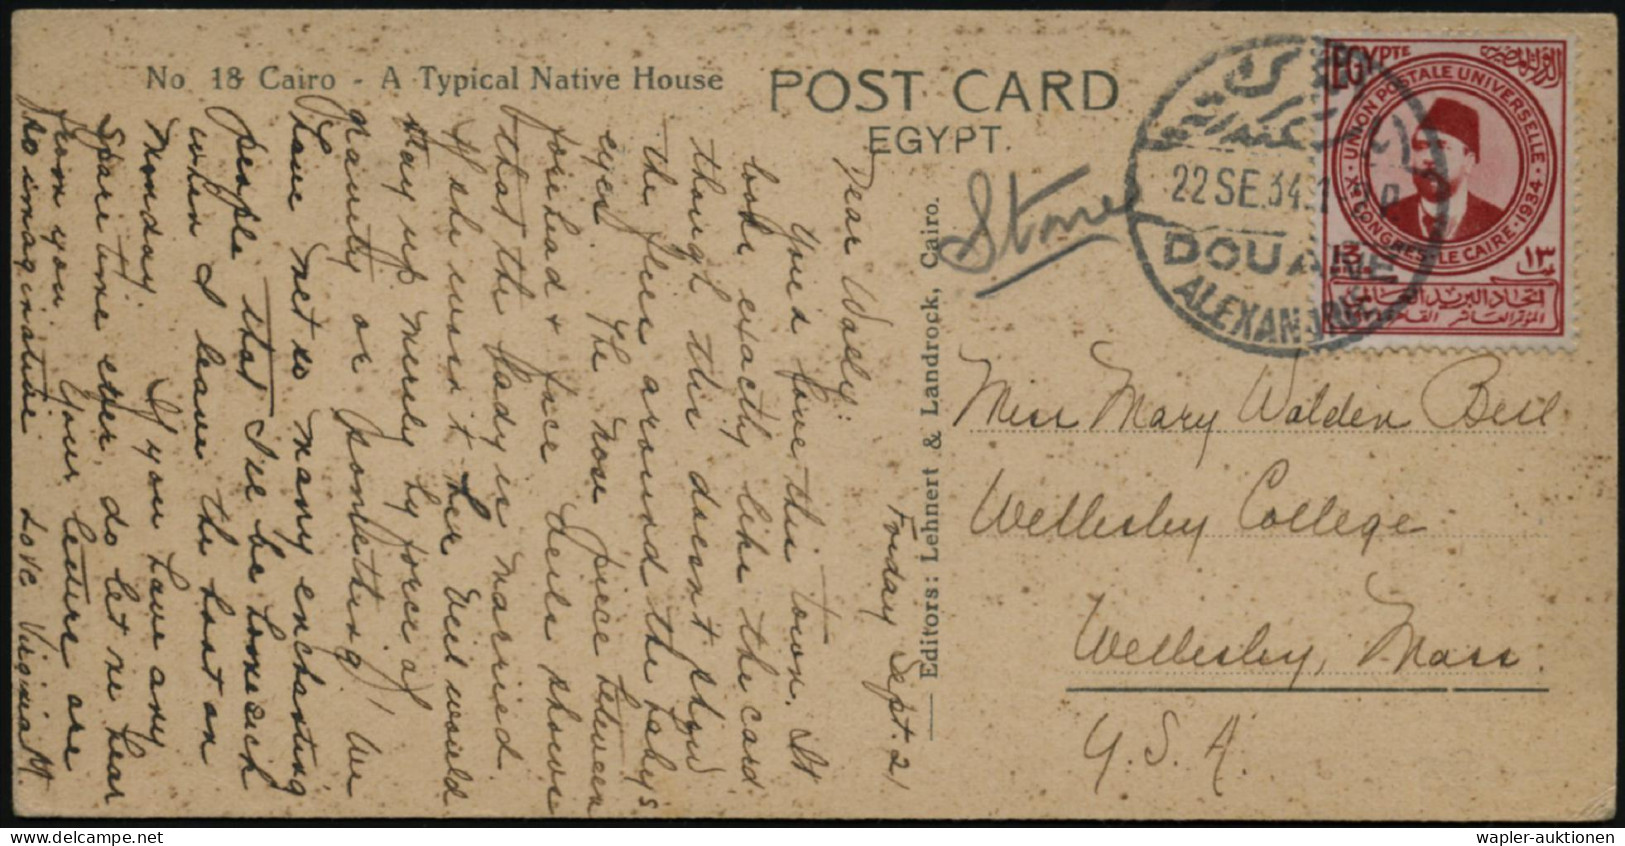 No 18 Cairo - A Typical Native House
POST CARD
EGYPT.
EGYPTE
الدولة المصرية
UNION POSTALE UNIVERSELLE
Xe CONGRES LE CAIRE 1934
13
١٣
اتحاد البريد العالمى
المؤتمر العاشر
22 SE.34.
DOUANE
ALEXANDRIE
Stone
Editors: Lehnert & Landrock, Cairo.
Friday Sept. 21
Dear Wally:
You'd love this town. It
looks exactly like the card
though this doesn't show
the flies around the baby's
eyes. The nose piece between
forehead & face veils shows
that the lady is married.
If she wasn't her veil would
stay up merely by force of
gravity or something! We
have met so many enchanting
people that I'll be homesick
when I leave the boat on
Monday. If you have any
spare time ever do let me hear
from you. Your letters are
so imaginative. Love Virginia M.
Miss Mary Walden Bell
Wellesley College
Wellesley, Mass.
U.S.A.
wapler-auktionen